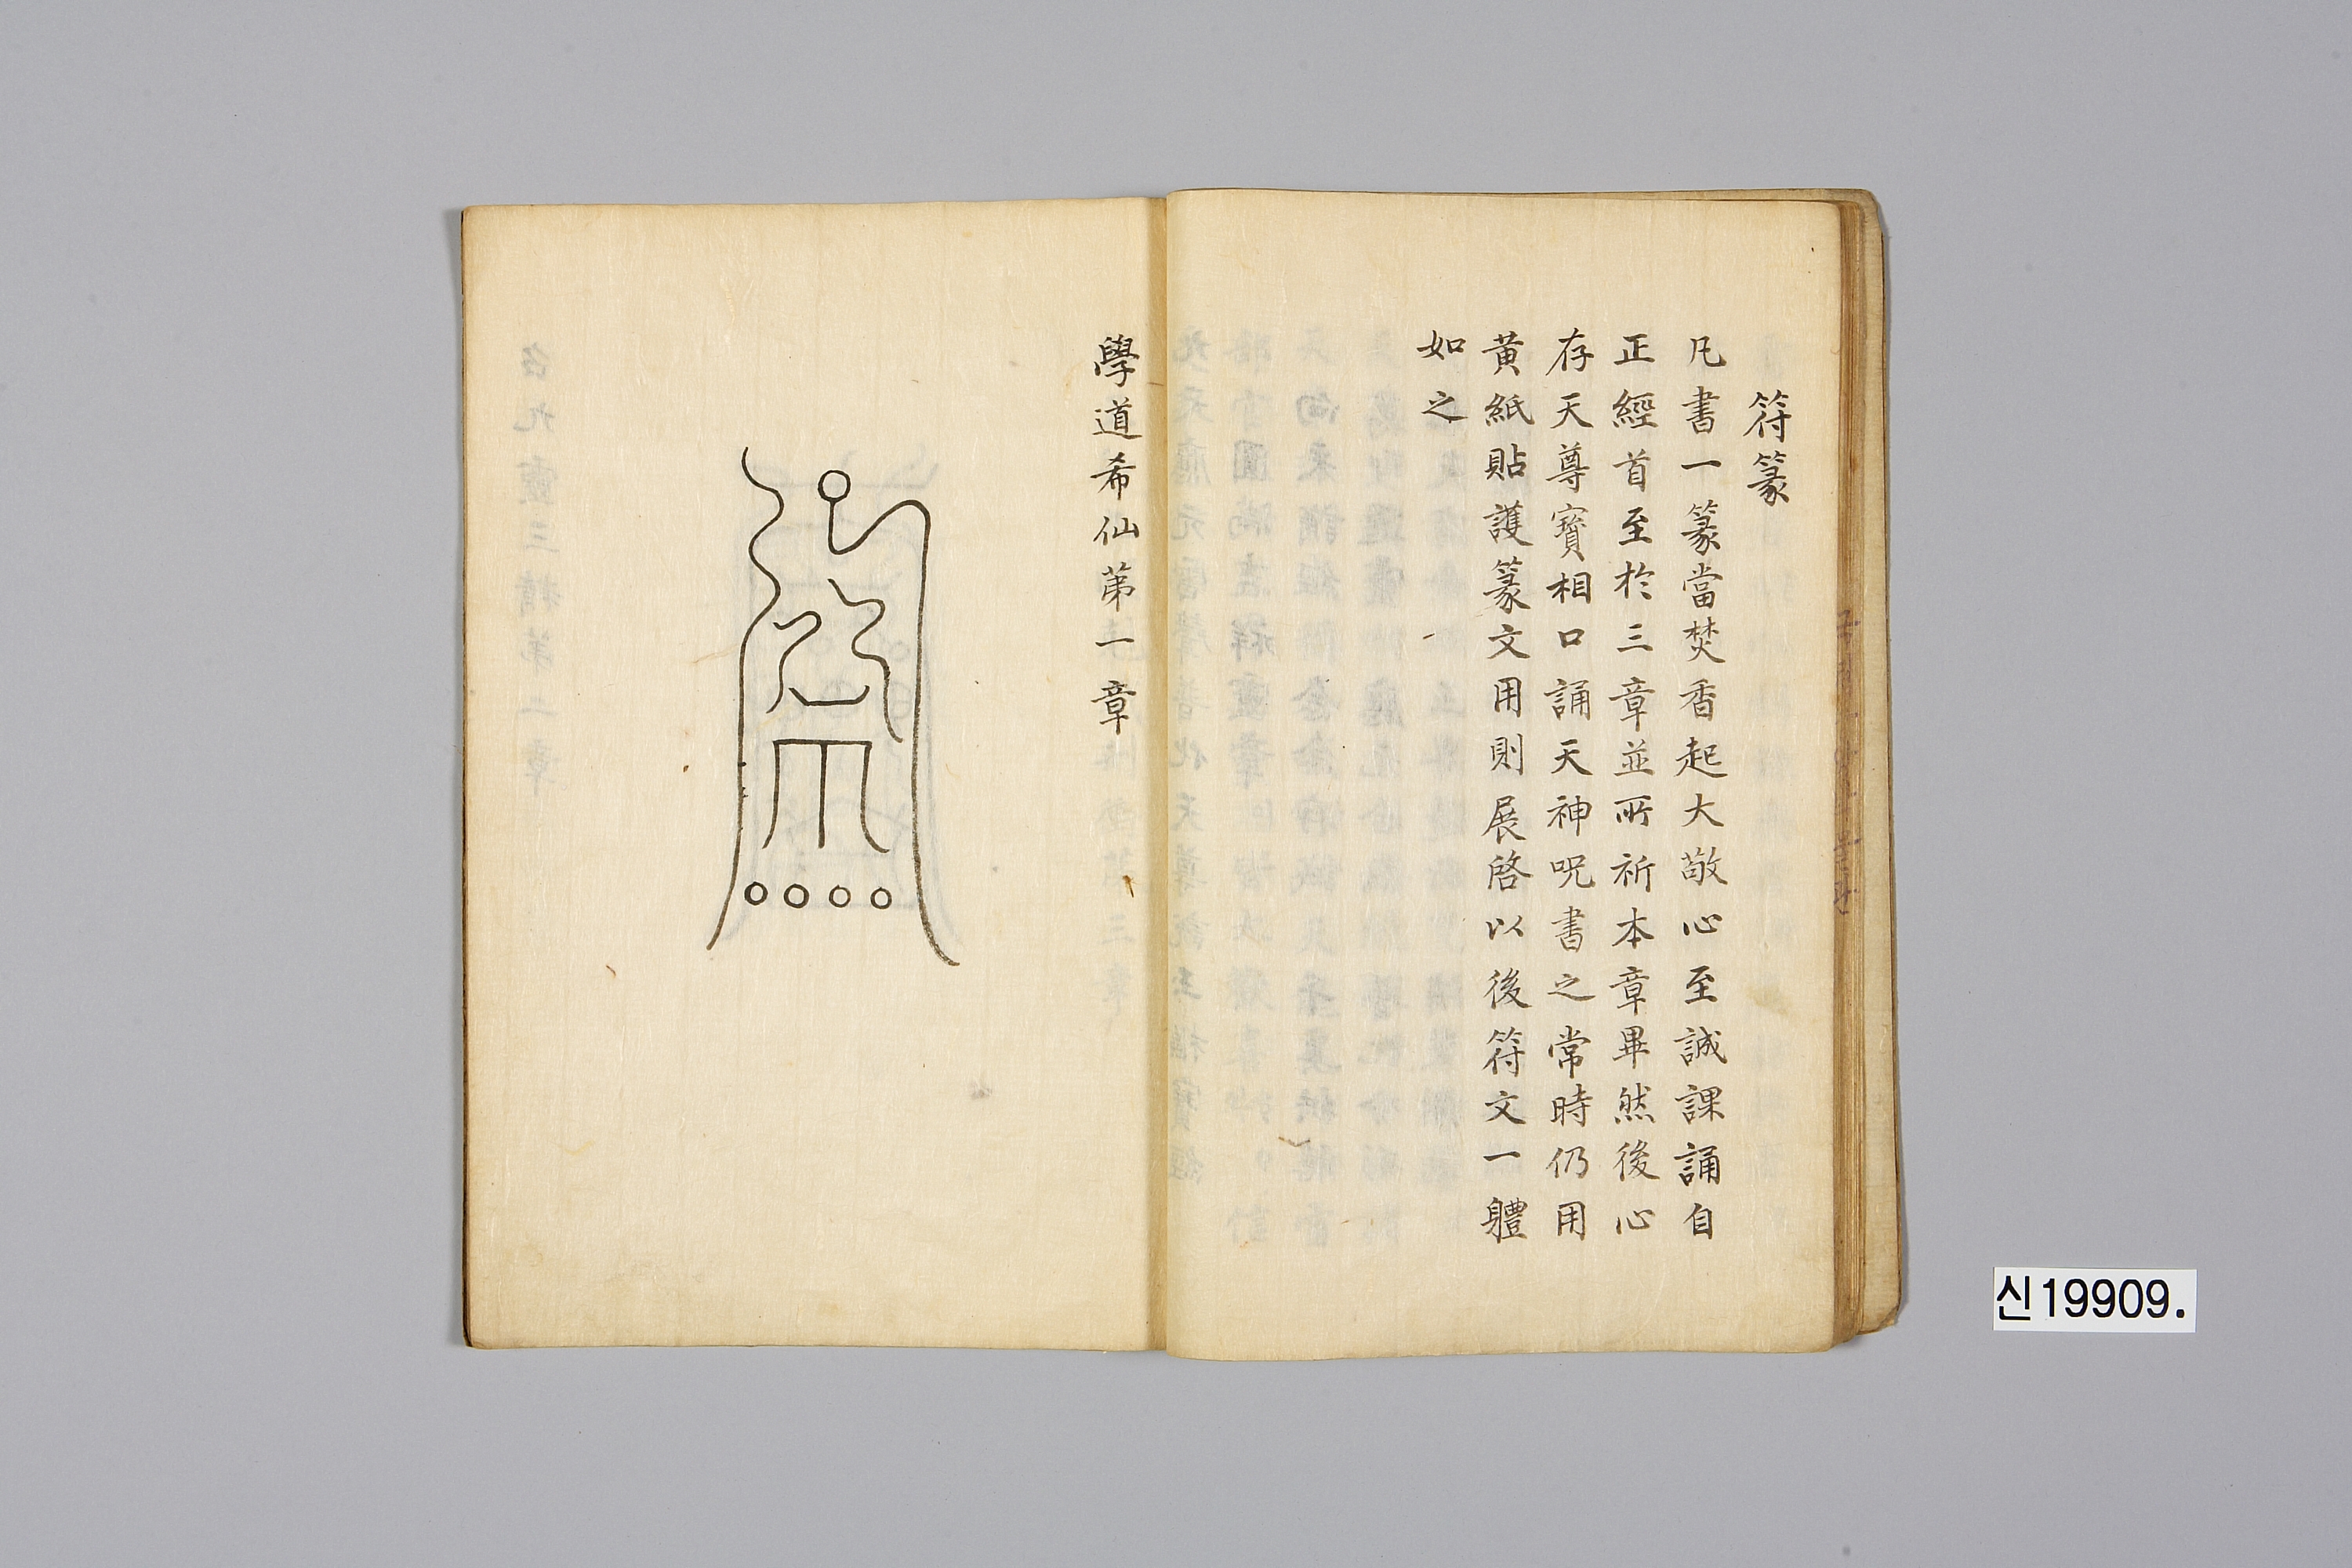 符篆
凡書一篆當焚香起大敬心至誠課誦自
正經首至於三章並所祈本章畢然後心
存天尊寶相口誦天天神呪書之常時仍用
黃紙貼護篆文用則展啓以後符文一體
如之
學道希仙苐一章
신19909.